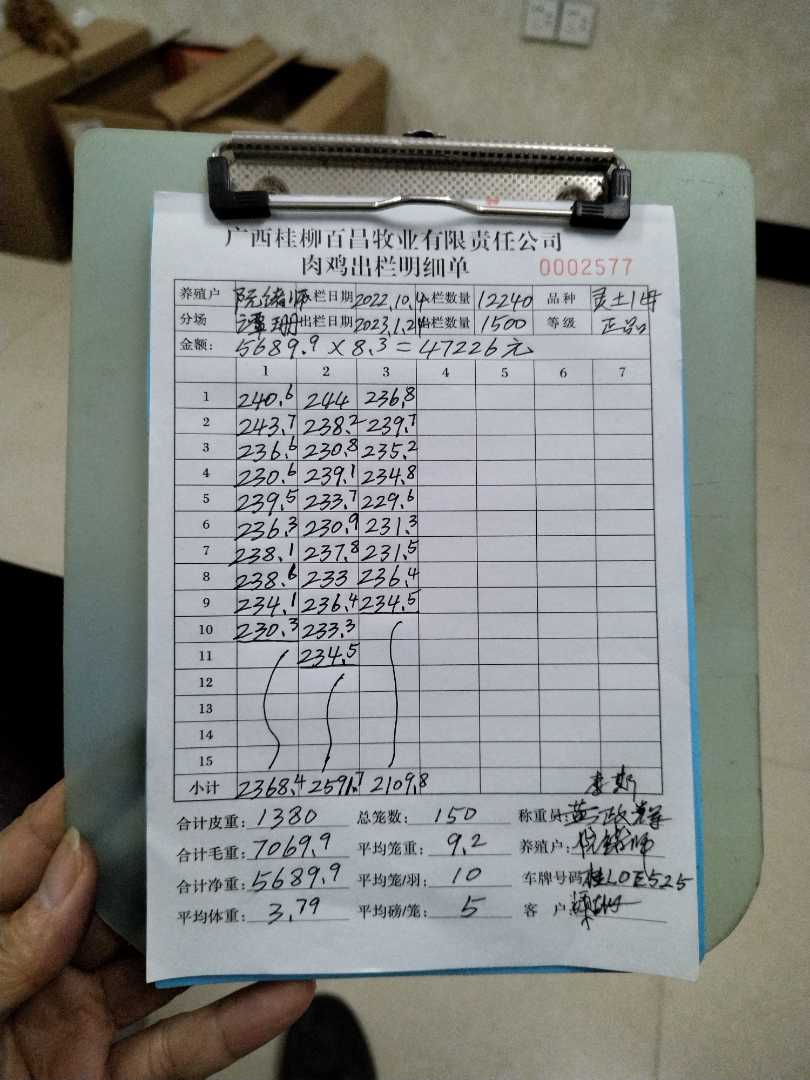 广西桂柳百昌牧业有限责任公司
肉鸡出栏明细单 0002577
养殖户 栏日期 2022.10.4 栏数量 12240 品种 灵土1号
分场 谭珊 出栏日期 2023.1.2 栏数量 1500 等级 正品
金额: 5689.9 × 8.3 = 47226元
1 2 3 4 5 6 7
1 240.6 244 236.8
2 243.7 238.2 239.7
3 236.6 230.8 235.2
4 230.6 239.1 234.8
5 239.5 233.7 229.6
6 236.3 230.9 231.3
7 238.1 237.8 231.5
8 238.6 233 236.4
9 234.1 236.4 234.5
10 230.3 233.3
11 234.5
12
13
14
15
小计 2368.4 2591.7 2109.8
合计皮重: 1380 总笼数: 150 称重员:
合计毛重: 7069.9 平均笼重: 9.2 养殖户:
合计净重: 5689.9 平均笼/羽: 10 车牌号码 桂L0E525
平均体重: 3.79 平均磅/笼: 5 客户